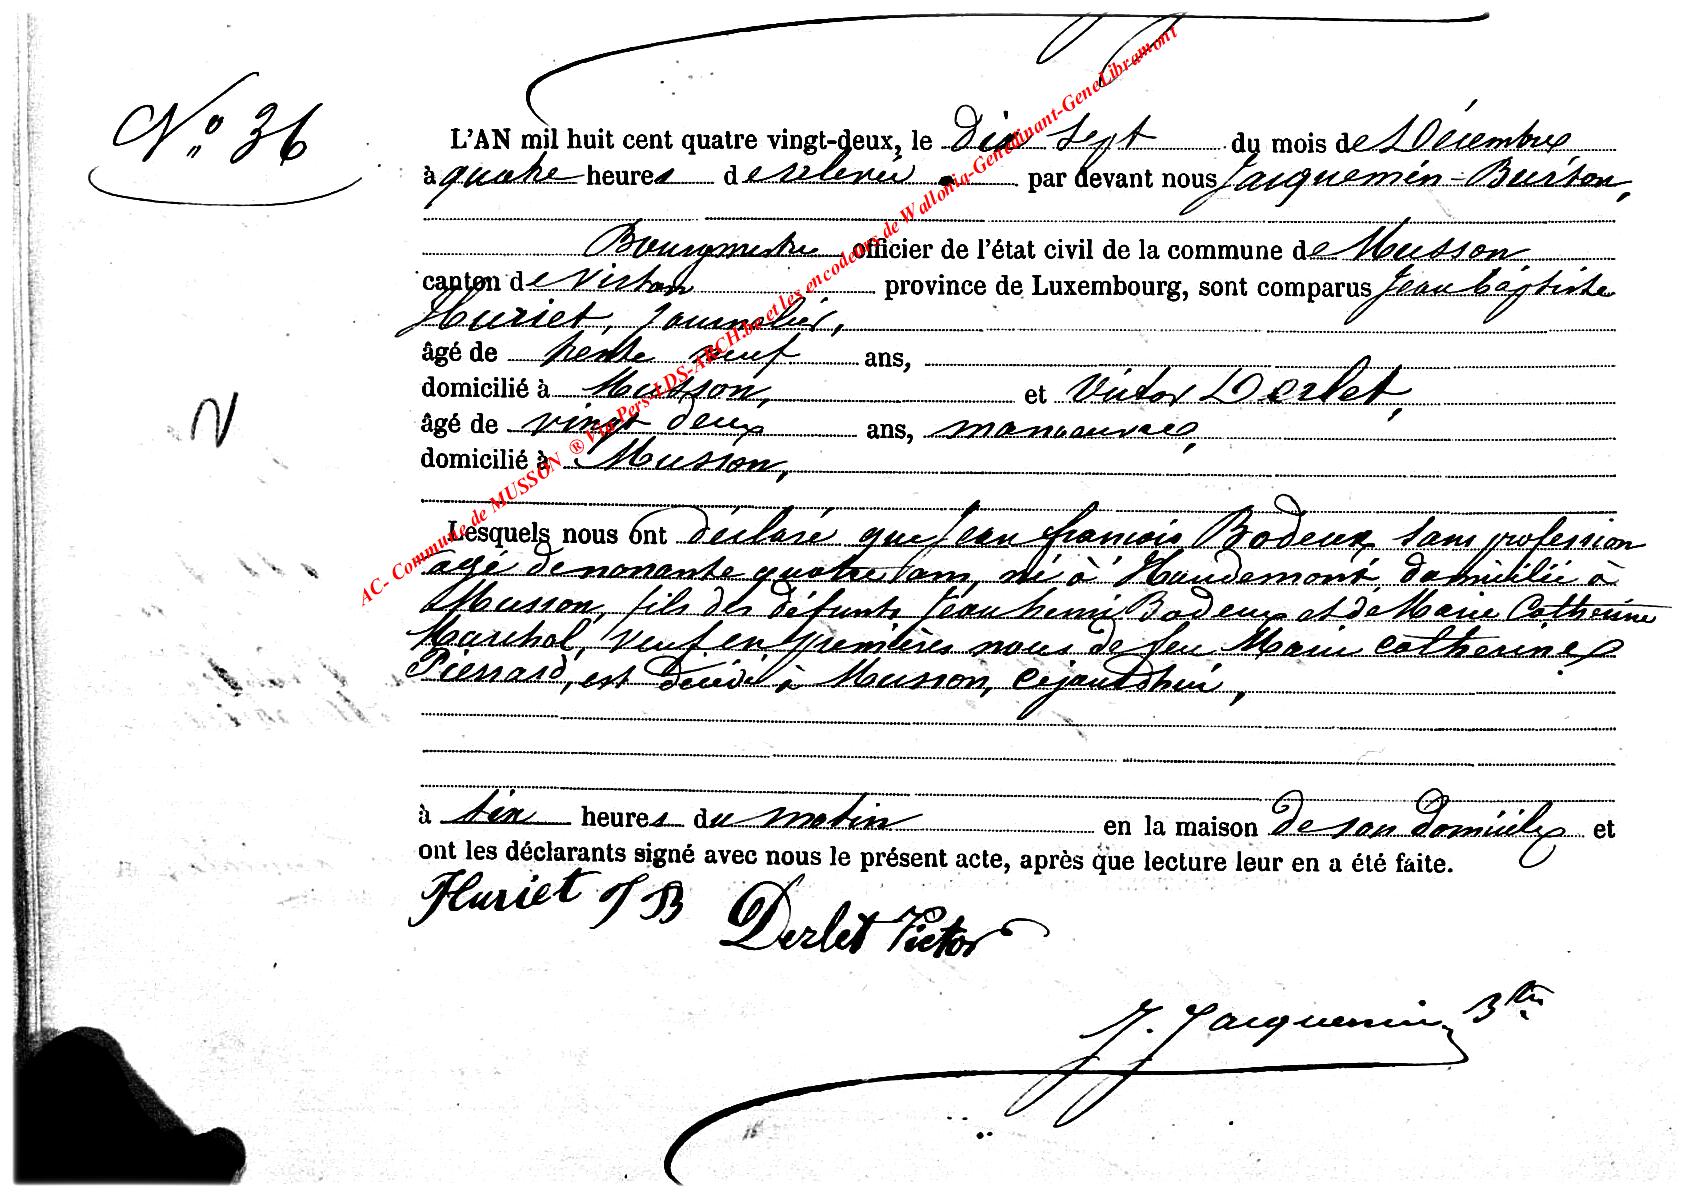 N° 36
L'AN mil huit cent quatre vingt-deux, le Dix sept du mois de Décembre
à quatre heures de relevée par devant nous Jacquemin-Buriton,
Bourgmestre officier de l'état civil de la commune de Musson
canton de Virton province de Luxembourg, sont comparus Jean Baptiste
Huriet, journalier,
âgé de trente neuf ans,
domicilié à Musson, et Victor Derlet,
âgé de vingt deux ans, manoeuvre,
domicilié à Musson,
Lesquels nous ont déclaré que Jean françois Bodeux sans profession
âgé de nonante quatre ans, né à Handemont, domicilié à
Musson, fils des défunts Jean henri Bodeux et de Marie Catherine
Marchal, veuf en premières noces de feu Marie Catherine
Pierrard, est décédé à Musson, cejourdhui,
à six heures du matin en la maison de son domicile et
ont les déclarants signé avec nous le présent acte, après que lecture leur en a été faite.
Huriet J B Derlet Victor
J. Jacquemin Btn
AC- Commune de MUSSON ® Via Pers-LDS-ARCH.be et les encodeurs de Wallonia-Genedinant-GeneLibramont